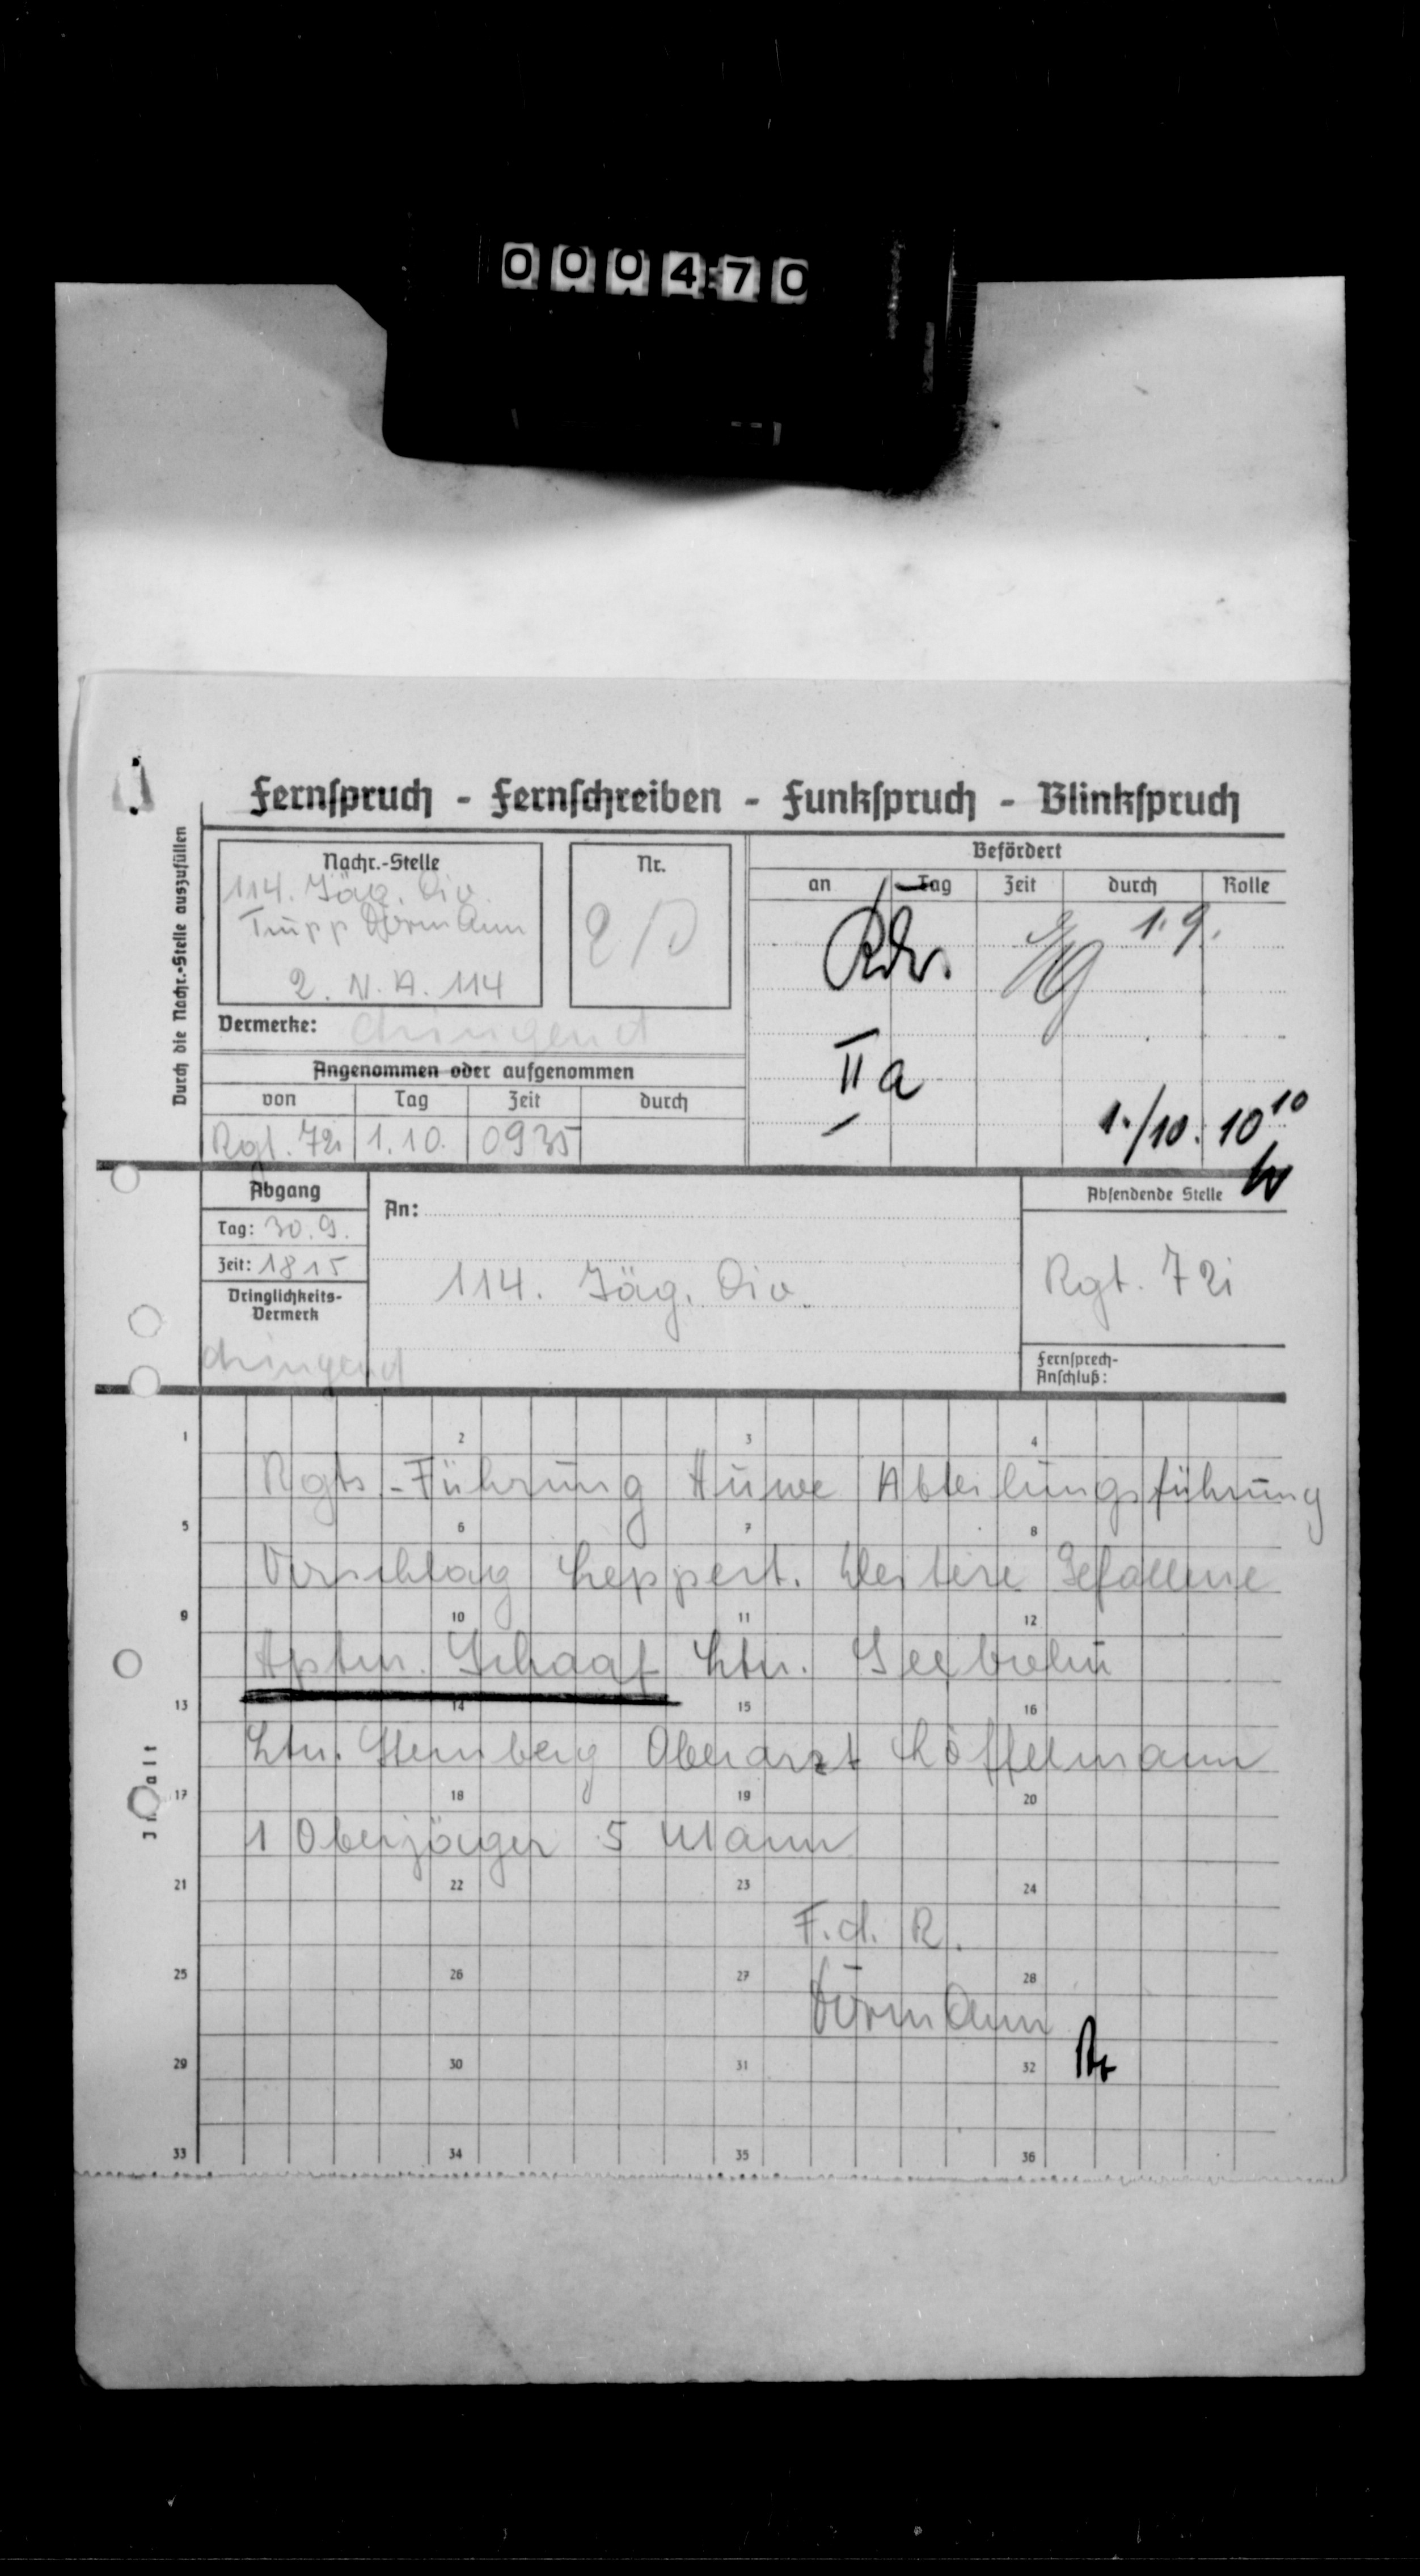 000470
Fernspruch - Fernschreiben - Funkspruch - Blinkspruch
Durch die Nachr.-Stelle auszufüllen
Nachr.-Stelle
114. Jäg. Div.
Trupp Dörmann
2. N. A. 114
Nr.
Vermerke: dringend
Angenommen oder aufgenommen
von Tag Zeit durch
Rgt. 721 1.10. 0935
Befördert
an Tag Zeit durch Rolle
Kdr. 1.9.
IIa
1./10. 10¹⁰
Abgang
Tag: 30.9.
Zeit: 1815
Dringlichkeits-
Vermerk
dringend
An:
114. Jäg. Div.
Absendende Stelle
Rgt. 721
Fernsprech-
Anschluß:
Inhalt
1 2 3 4
Rgts-Führung Huwe Abteilungsführung
5 6 7 8
Vorschlag Leppert. Weitere Gefallene
9 10 11 12
Hptm. Schaaf Ltn. Seebohm
13 14 15 16
Ltn. Sternberg Oberarzt Löffelmann
17 18 19 20
1 Oberjäger 5 Mann
21 22 23 24
F.d. R.
25 26 27 28
Dörmann
29 30 31 32
33 34 35 36